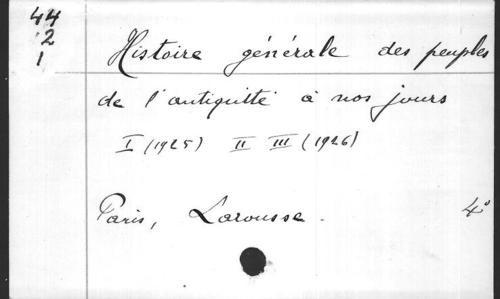 44
2
1
Histoire générale des peuples
de l'antiquité à nos jours
I (1925) II III (1926)
Paris, Larousse. 4°